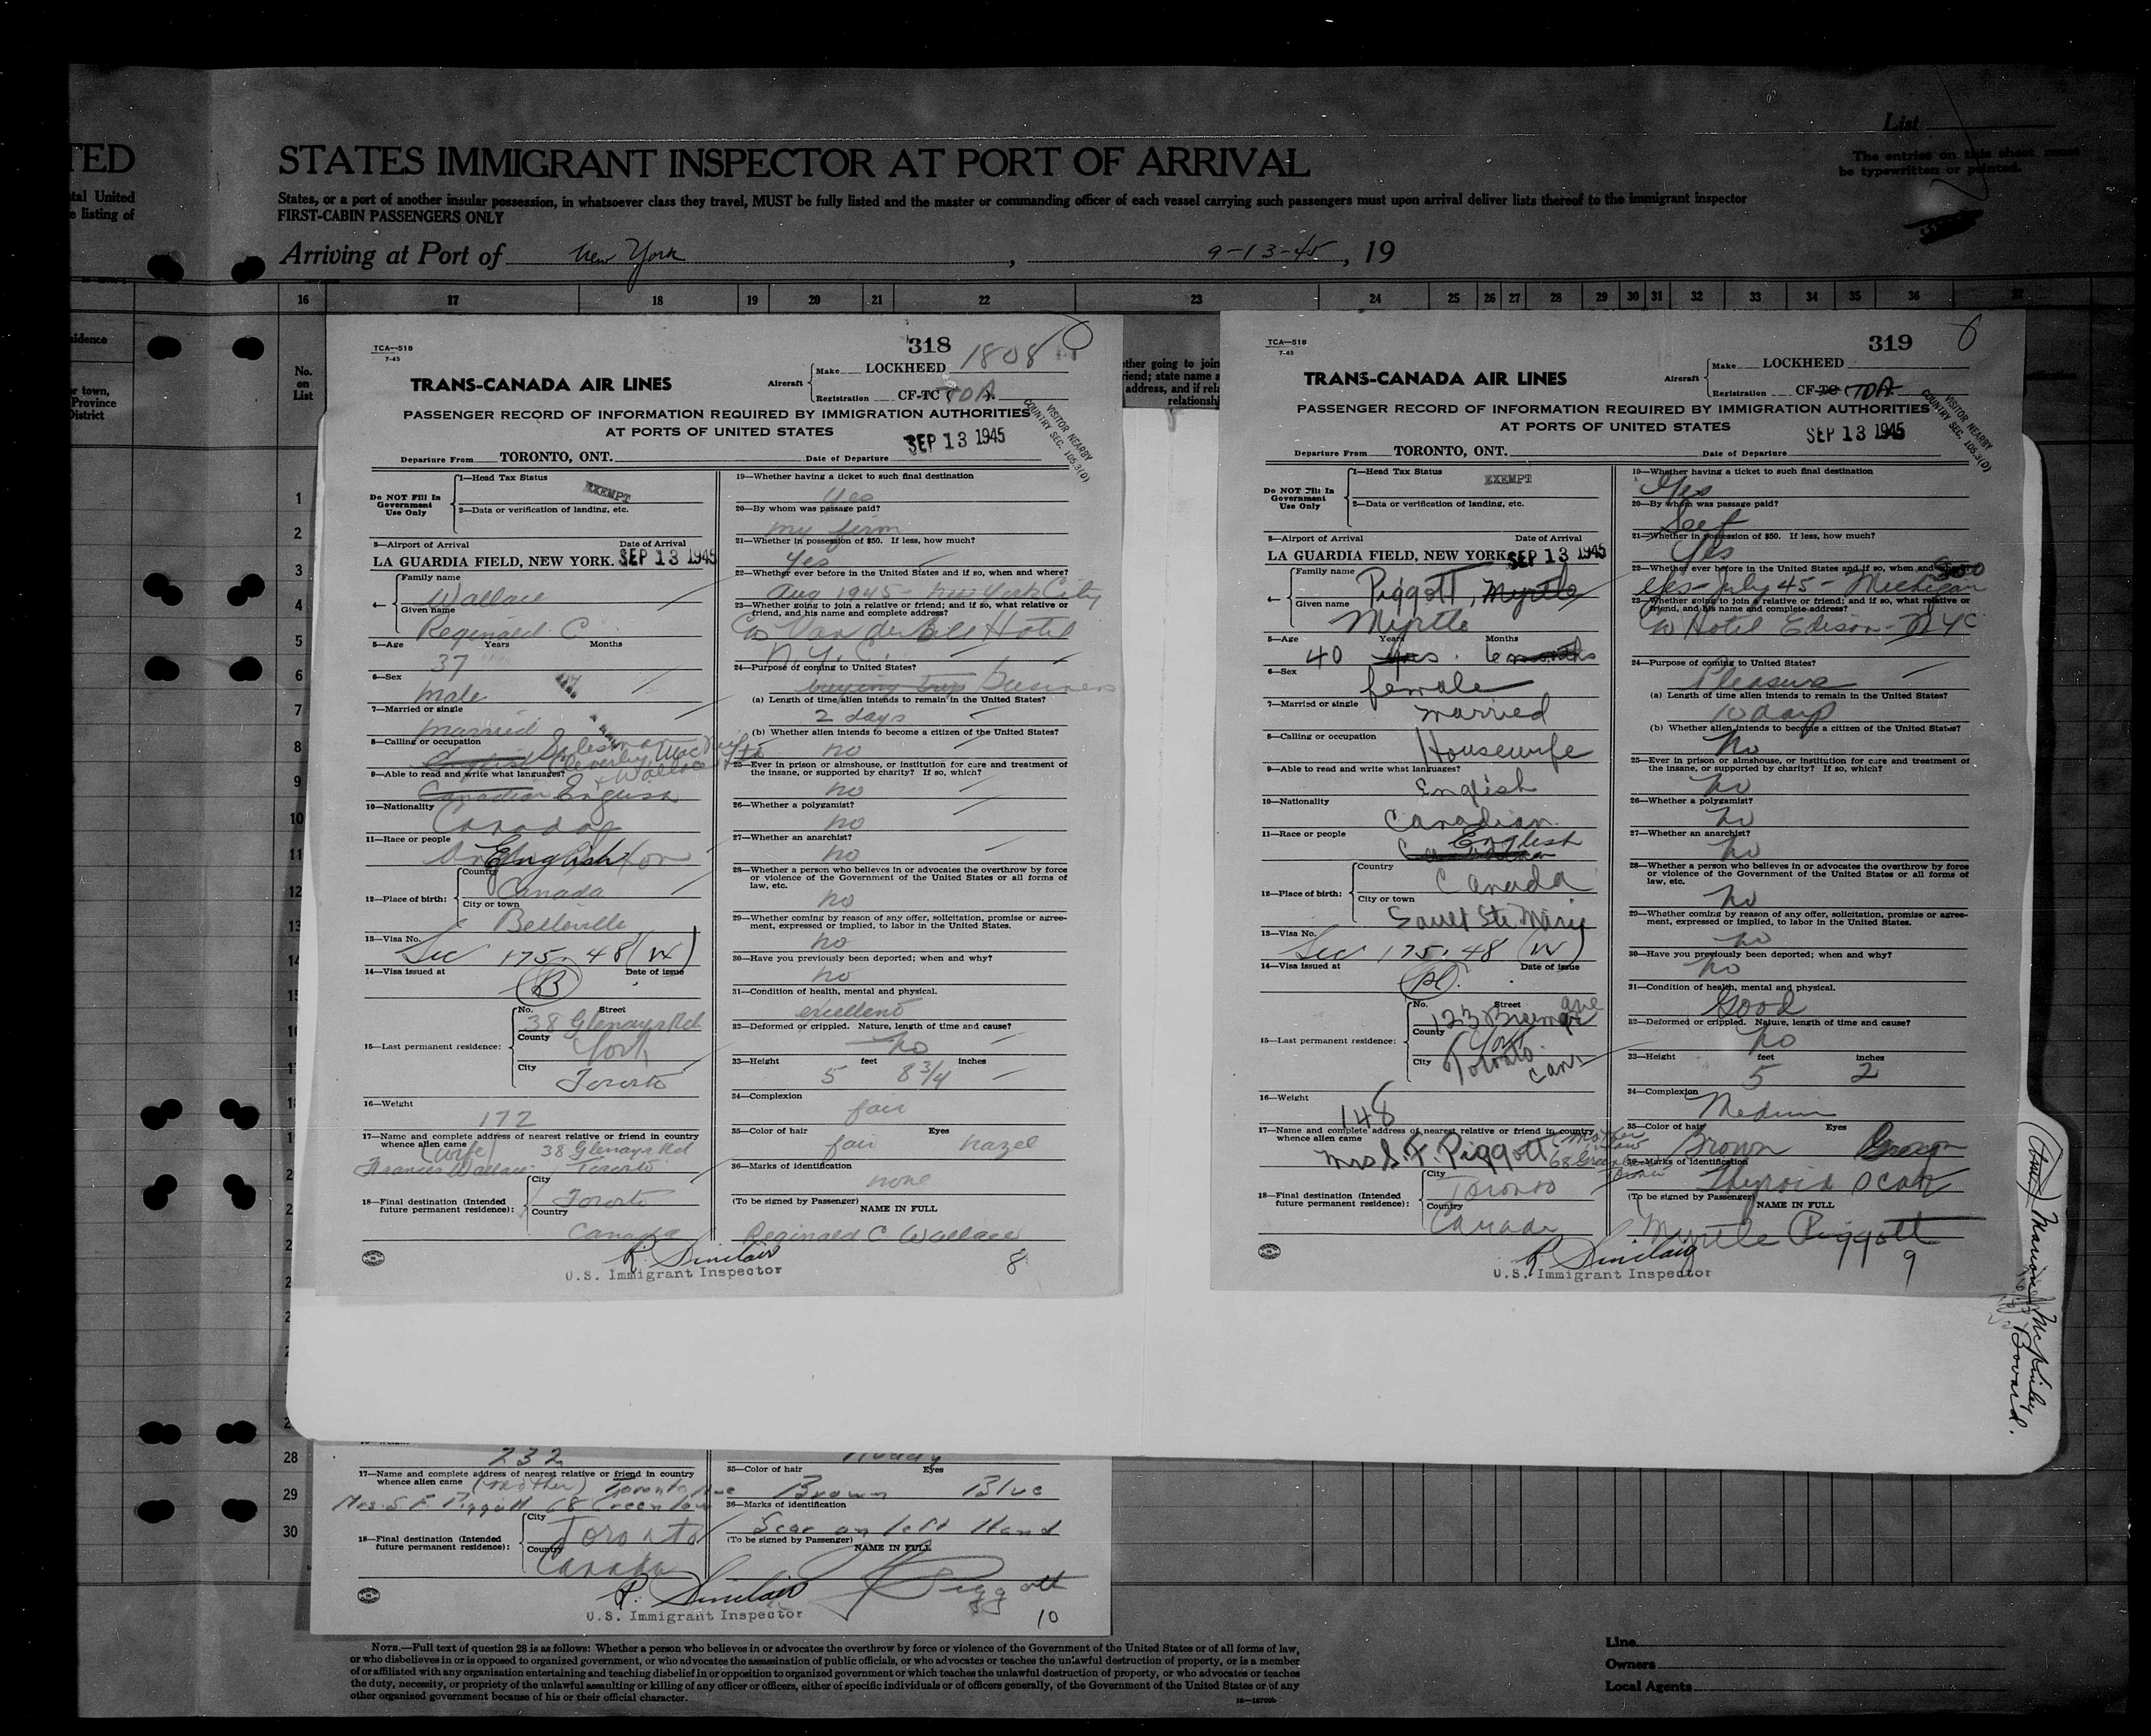 TED
STATES IMMIGRANT INSPECTOR AT PORT OF ARRIVAL
List
The entries on this sheet must
be typewritten or printed.
tal United
e listing of
States, or a port of another insular possession, in whatsoever class they travel, MUST be fully listed and the master or commanding officer of each vessel carrying such passengers must upon arrival deliver lists thereof to the immigrant inspector
FIRST-CABIN PASSENGERS ONLY
Arriving at Port of New York, 9-13-45, 19
16 17 18 19 20 21 22 23 24 25 26 27 28 29 30 31 32 33 34 35 36 37
sidence
r town,
Province
District
No.
on
List
1
2
3
4
5
6
7
8
9
10
11
12
13
14
15
28
29
30
ther going to join
riend; state name a
address, and if rela
relationsh
318
1808
TCA—518
7-45
TRANS-CANADA AIR LINES
Aircraft
Make LOCKHEED
Registration CF-TC TDA.
PASSENGER RECORD OF INFORMATION REQUIRED BY IMMIGRATION AUTHORITIES
AT PORTS OF UNITED STATES
VISITOR NEARBY
COUNTRY SEC. 105.3(D)
SEP 13 1945
Departure From TORONTO, ONT. Date of Departure
Do NOT Fill In
Government
Use Only
1—Head Tax Status EXEMPT
2—Data or verification of landing, etc.
3—Airport of Arrival Date of Arrival
LA GUARDIA FIELD, NEW YORK. SEP 13 1945
4—
Family name
Wallace
Given name
Reginald C
5—Age Years Months
37
6—Sex
male
7—Married or single
married
8—Calling or occupation
Salesman
9—Able to read and write what languages?
Canadian English
10—Nationality
Canada
11—Race or people
English
12—Place of birth:
Country
Canada
City or town
Belleville
13—Visa No.
Sec 175.48 (W)
14—Visa issued at Date of issue
B
15—Last permanent residence:
No. Street
38 Glenayr Rd
County
York
City
Toronto
16—Weight
172
17—Name and complete address of nearest relative or friend in country
whence alien came
(wife) 38 Glenayr Rd
Frances Wallace Toronto
18—Final destination (Intended
future permanent residence):
City
Toronto
Country
Canada
19—Whether having a ticket to such final destination
Yes
20—By whom was passage paid?
my firm
21—Whether in possession of $50. If less, how much?
Yes
22—Whether ever before in the United States and if so, when and where?
Aug 1945 - New York City
23—Whether going to join a relative or friend; and if so, what relative or
friend, and his name and complete address?
c/o Vanderbilt Hotel
N.Y.C.
24—Purpose of coming to United States?
buying trip Business
(a) Length of time alien intends to remain in the United States?
2 days
(b) Whether alien intends to become a citizen of the United States?
no
25—Ever in prison or almshouse, or institution for care and treatment of
the insane, or supported by charity? If so, which?
no
26—Whether a polygamist?
no
27—Whether an anarchist?
no
28—Whether a person who believes in or advocates the overthrow by force
or violence of the Government of the United States or all forms of
law, etc.
no
29—Whether coming by reason of any offer, solicitation, promise or agree-
ment, expressed or implied, to labor in the United States.
no
30—Have you previously been deported; when and why?
no
31—Condition of health, mental and physical.
excellent
32—Deformed or crippled. Nature, length of time and cause?
no
33—Height feet inches
5 8 3/4
34—Complexion
fair
35—Color of hair Eyes
fair hazel
36—Marks of identification
none
(To be signed by Passenger) NAME IN FULL
Reginald C Wallace
R. Sinclair
U.S. Immigrant Inspector
8
319
TCA—518
7-45
TRANS-CANADA AIR LINES
Aircraft
Make LOCKHEED
Registration CF-TC TDA.
PASSENGER RECORD OF INFORMATION REQUIRED BY IMMIGRATION AUTHORITIES
AT PORTS OF UNITED STATES
VISITOR NEARBY
COUNTRY SEC. 105.3(D)
SEP 13 1945
Departure From TORONTO, ONT. Date of Departure
Do NOT Fill In
Government
Use Only
1—Head Tax Status EXEMPT
2—Data or verification of landing, etc.
3—Airport of Arrival Date of Arrival
LA GUARDIA FIELD, NEW YORK. SEP 13 1945
4—
Family name
Piggott, Myrtle
Given name
Myrtle
5—Age Years Months
40 yrs. 6 months
6—Sex
female
7—Married or single
married
8—Calling or occupation
Housewife
9—Able to read and write what languages?
English
10—Nationality
Canadian
11—Race or people
English
Canadian
12—Place of birth:
Country
Canada
City or town
Sault Ste Marie
13—Visa No.
Sec 175.48 (W)
14—Visa issued at Date of issue
15—Last permanent residence:
No. Street
123 Braemar ave
County
York
City
Toronto. Can.
16—Weight
148
17—Name and complete address of nearest relative or friend in country
whence alien came
Mrs S. F. Piggott
18—Final destination (Intended
future permanent residence):
City
Toronto
Country
Canada
19—Whether having a ticket to such final destination
Yes
20—By whom was passage paid?
Self
21—Whether in possession of $50. If less, how much?
Yes
22—Whether ever before in the United States and if so, when and where?
Yes - July 45 - Michigan
23—Whether going to join a relative or friend; and if so, what relative or
friend, and his name and complete address?
c/o Hotel Edison - NYC
24—Purpose of coming to United States?
Pleasure
(a) Length of time alien intends to remain in the United States?
10 days
(b) Whether alien intends to become a citizen of the United States?
No
25—Ever in prison or almshouse, or institution for care and treatment of
the insane, or supported by charity? If so, which?
no
26—Whether a polygamist?
no
27—Whether an anarchist?
no
28—Whether a person who believes in or advocates the overthrow by force
or violence of the Government of the United States or all forms of
law, etc.
no
29—Whether coming by reason of any offer, solicitation, promise or agree-
ment, expressed or implied, to labor in the United States.
no
30—Have you previously been deported; when and why?
no
31—Condition of health, mental and physical.
Good
32—Deformed or crippled. Nature, length of time and cause?
no
33—Height feet inches
5 2
34—Complexion
Medium
35—Color of hair Eyes
Brown
36—Marks of identification
Thyroid scar
(To be signed by Passenger) NAME IN FULL
Myrtle Piggott
R. Sinclair
U.S. Immigrant Inspector
9
(Aunt) Marion McKinley
232 Ruddy
17—Name and complete address of nearest relative or friend in country
whence alien came
(mother) Toronto
Mrs. S F. Piggott 68 Greenlaw Ave
18—Final destination (Intended
future permanent residence):
City
Toronto
Country
Canada
35—Color of hair Eyes
Brown Blue
36—Marks of identification
Scar on left Hand
(To be signed by Passenger)
NAME IN FULL
Piggott
R. Sinclair
U.S. Immigrant Inspector
10
NOTE.—Full text of question 28 is as follows: Whether a person who believes in or advocates the overthrow by force or violence of the Government of the United States or of all forms of law,
or who disbelieves in or is opposed to organized government, or who advocates the assassination of public officials, or who advocates or teaches the unlawful destruction of property, or is a member
of or affiliated with any organization entertaining and teaching disbelief in or opposition to organized government or which teaches the unlawful destruction of property, or who advocates or teaches
the duty, necessity, or propriety of the unlawful assaulting or killing of any officer or officers, either of specific individuals or of officers generally, of the Government of the United States or of any
other organized government because of his or their official character.
Line
Owners
Local Agents